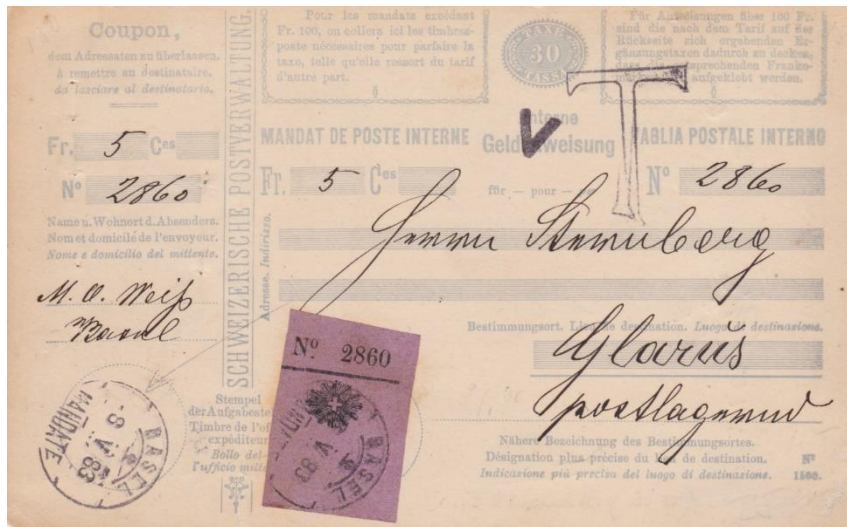 Coupon,
dem Adressaten zu überlassen.
à remettre au destinataire.
da lasciare al destinatario.
Fr. 5 Ces
No 2860
Name u. Wohnort d. Absenders.
Nom et domicile de l'envoyeur.
Nome e domicilio del mittente.
Basel
BASEL
MANDATE
SCHWEIZERISCHE POSTVERWALTUNG.
Pour les mandats excédant
Fr. 100, on collera ici les timbres-
poste nécessaires pour parfaire la
taxe, telle qu'elle ressort du tarif
d'autre part.
TAXE
30
TASSA
Für Anweisungen über 100 Fr.
sind die nach dem Tarif auf der
Rückseite sich ergebenden Er-
gänzungstaxen dadurch zu decken,
dass die entsprechenden Franko-
aufgeklebt werden.
T
MANDAT DE POSTE INTERNE
Interne
Geldanweisung
VAGLIA POSTALE INTERNO
Fr. 5 Ces
für — pour —
No 2860
Adresse. Indirizzo.
Herrn Sternberg
Bestimmungsort. Lieu de destination. Luogo di destinazione.
Glarus
postlagernd
Nähere Bezeichnung des Bestimmungsortes.
Désignation plus précise du lieu de destination.
Indicazione più precisa del luogo di destinazione.
No
Stempel
der Aufgabestelle
Timbre de l'office
expéditeur
Bollo del-
l'ufficio mittente
No 2860
BASEL